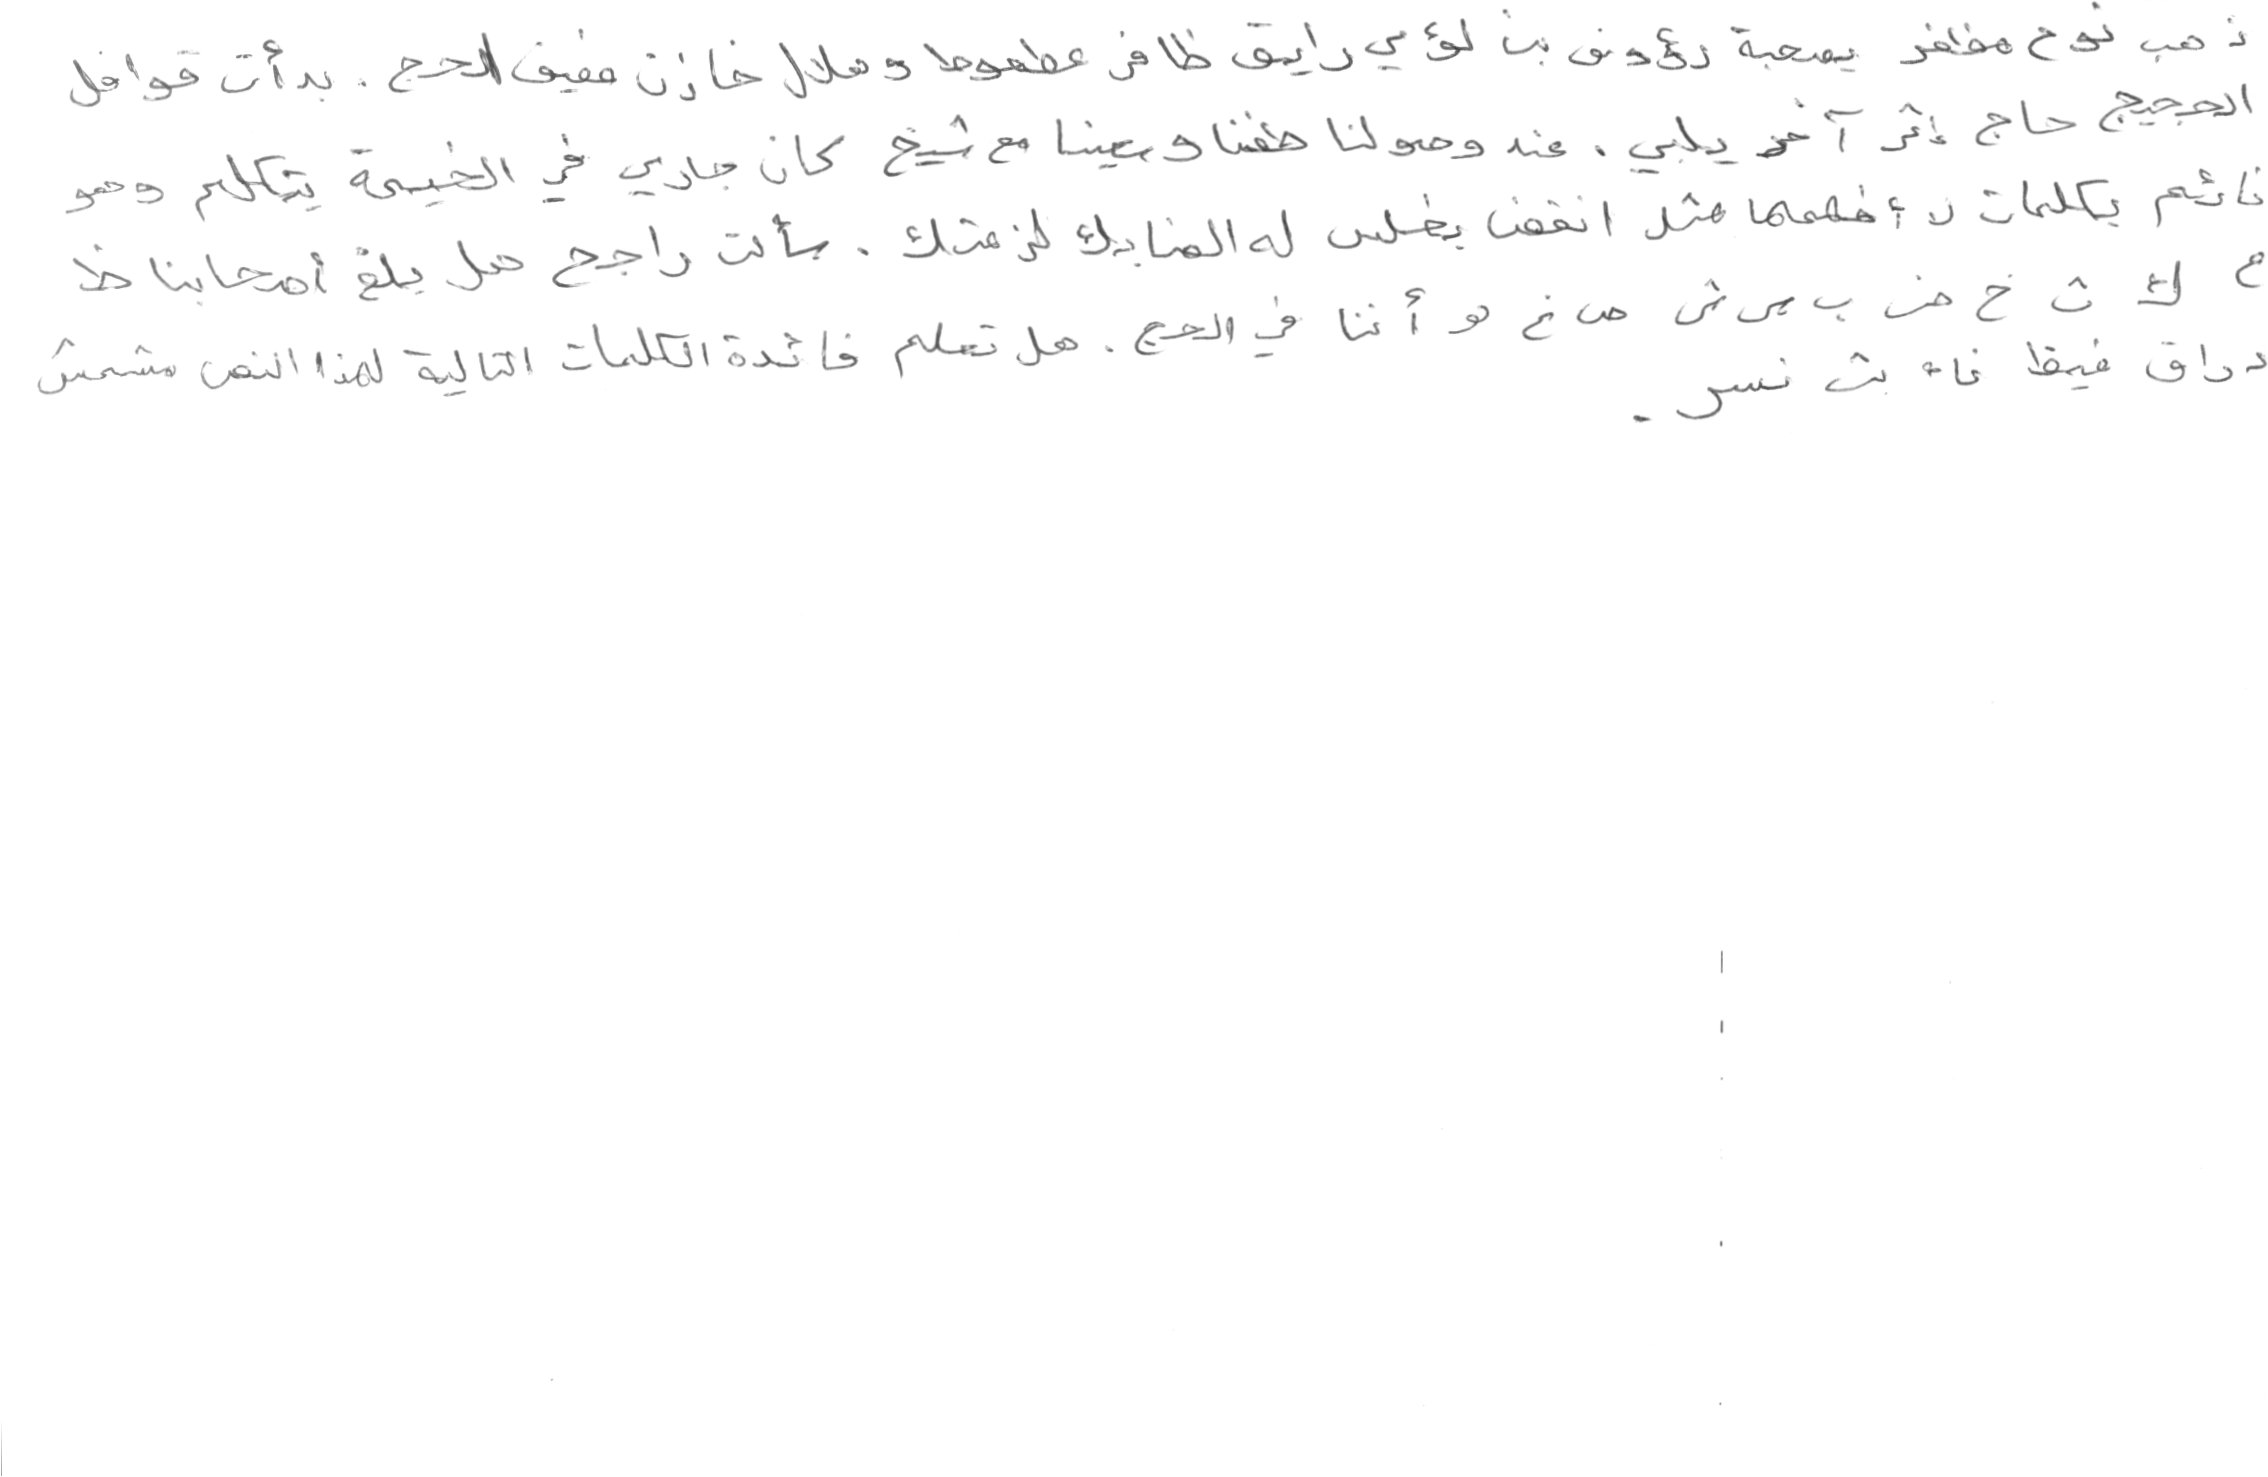 ذهب نوح مظفر بصحبة رؤوف بن لؤي رايق ظافر عطعوط و هلال خازن مفيض الحج . بدأت قوافل
الحجيج حاج إثر آخر يلبي . عند وصولنا طفنا و سعينا مع شيخ كان جاري في الخيمة يتكلم وهو
نائم بكلمات لا أفهمها مثل انقض بغلس له الضابك لزمتك . سألت راجح هل بلغ أصحابنا ظ
م ك ث خ ض ب س ش ص غ لو أننا في الحج . هل تعلم فائدة الكلمات التالية لهذا النص مشمش
دراق غيظ ثاء بث نسر .